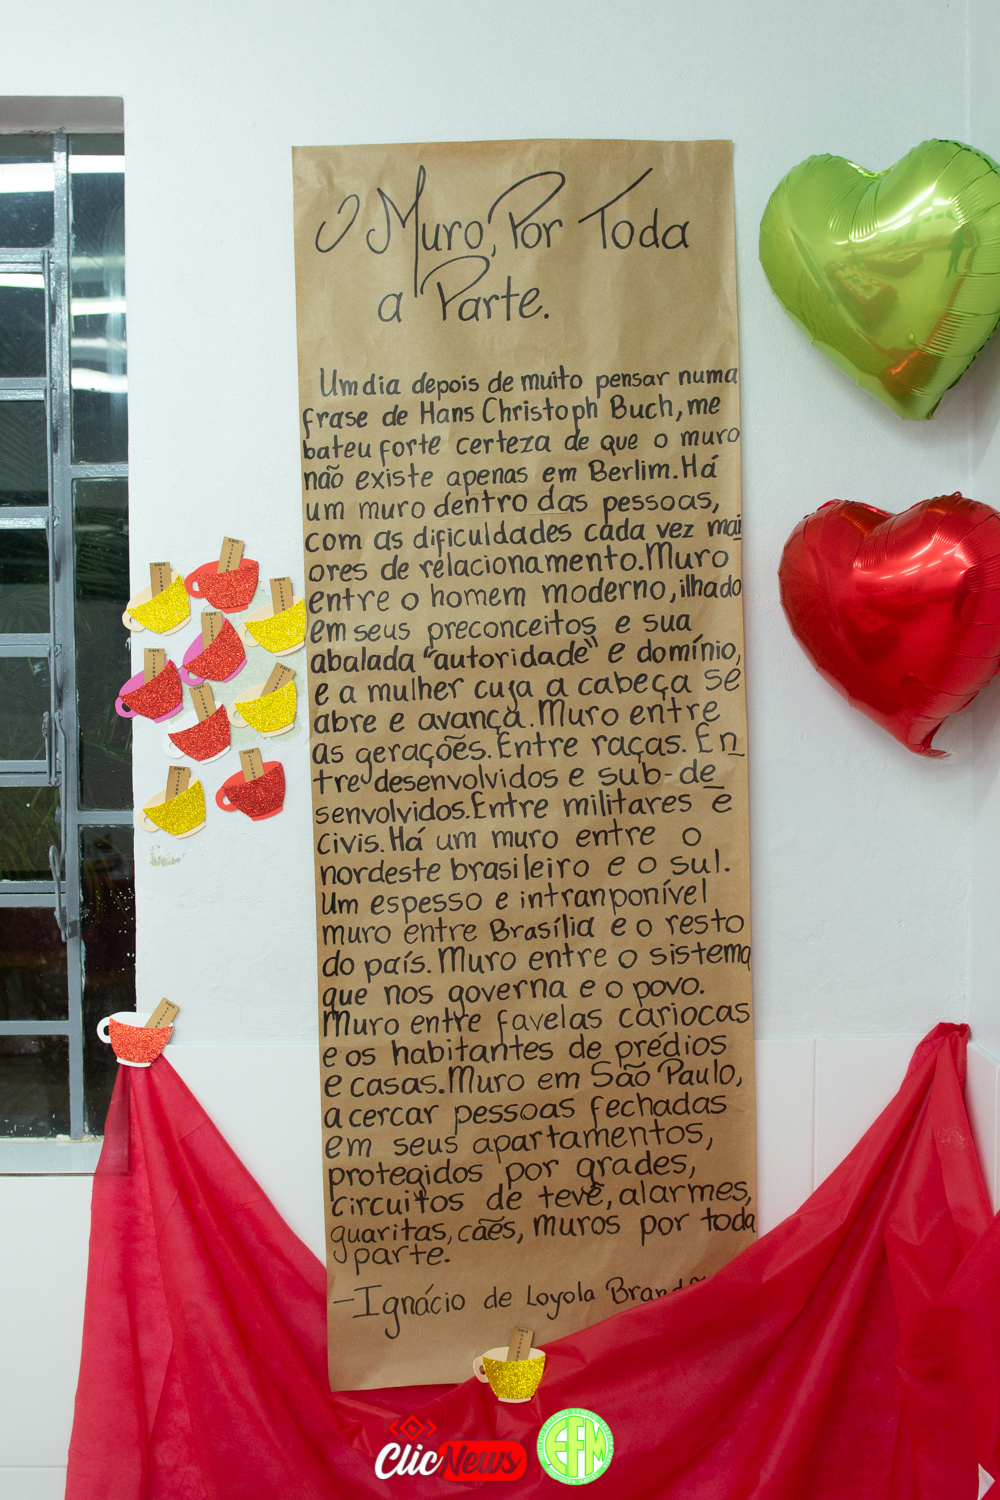 O Muro, Por Toda
a Parte.
Um dia depois de muito pensar numa
frase de Hans Christoph Buch, me
bateu forte certeza de que o muro
não existe apenas em Berlim. Há
um muro dentro das pessoas,
com as dificuldades cada vez mai
ores de relacionamento. Muro
entre o homem moderno, ilhado
em seus preconceitos e sua
abalada "autoridade" e domínio,
e a mulher cuja a cabeça se
abre e avança. Muro entre
as gerações. Entre raças. En
tre desenvolvidos e sub-de
senvolvidos. Entre militares e
civis. Há um muro entre o
nordeste brasileiro e o sul.
Um espesso e intranponível
muro entre Brasília e o resto
do país. Muro entre o sistema
que nos governa e o povo.
Muro entre favelas cariocas
e os habitantes de prédios
e casas. Muro em São Paulo,
a cercar pessoas fechadas
em seus apartamentos,
protegidos por grades,
circuitos de tevê, alarmes,
guaritas, cães, muros por toda
parte.
- Ignácio de Loyola
ClicNews
EFM